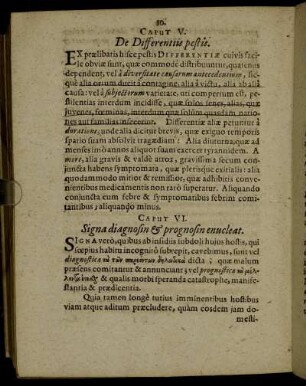 10.
CAPUT V.
De Differentiis pestis.
EX prælibatis hisce pestis DIFFERENTIÆ cuivis faci-
lè obviæ sunt, quæ commodè distribuuntur, quatenus
dependent, vel à diversitate causarum antecedentium, sic-
què alia ortum ducit à contagine, alia à victu, alia ab alia
causa: vel à subjectorum varietate, uti compertum est, pe-
stilentias interdum incidisse, quæ solos senes, alias, quæ
juvenes, fœminas, interdum quæ solùm quasdam natio-
nes aut familias infecerint. Differentiæ aliæ petuntur à
duratione, unde alia dicitur brevis, quæ exiguo temporis
spatio suam absolvit tragædiam: Alia diuturna, quæ ad
menses imò annos aliquot suam exercet tyrannidem. A
more, alia gravis & valdè atrox, gravissima secum con-
juncta habens symptomata, quæ plerisque exitialis: alia
quodammodo mitior & remissior, quæ adhibitis conve-
nientibus medicamentis non rarò superatur. Aliquando
conjuncta cum febre & symptomatibus febrim comi-
tantibus; aliquando minùs.
CAPUT VI.
Signa diagnosin & prognosin enucleat.
SIGNA verò, quibus ab insidiis subdoli hujus hostis, qui
sæpius habitu incognitò subrepit, cavebimus, sunt vel
dicta; quæ malum
præsens comitantur & annunciant; vel prognostica
& qualia morbi speranda catastrophe, manife-
stantia & prædicentia.
Quia tamen longè tutius imminentibus hostibus
viam atque aditum præcludere, quàm eosdem jam do-
mesti-